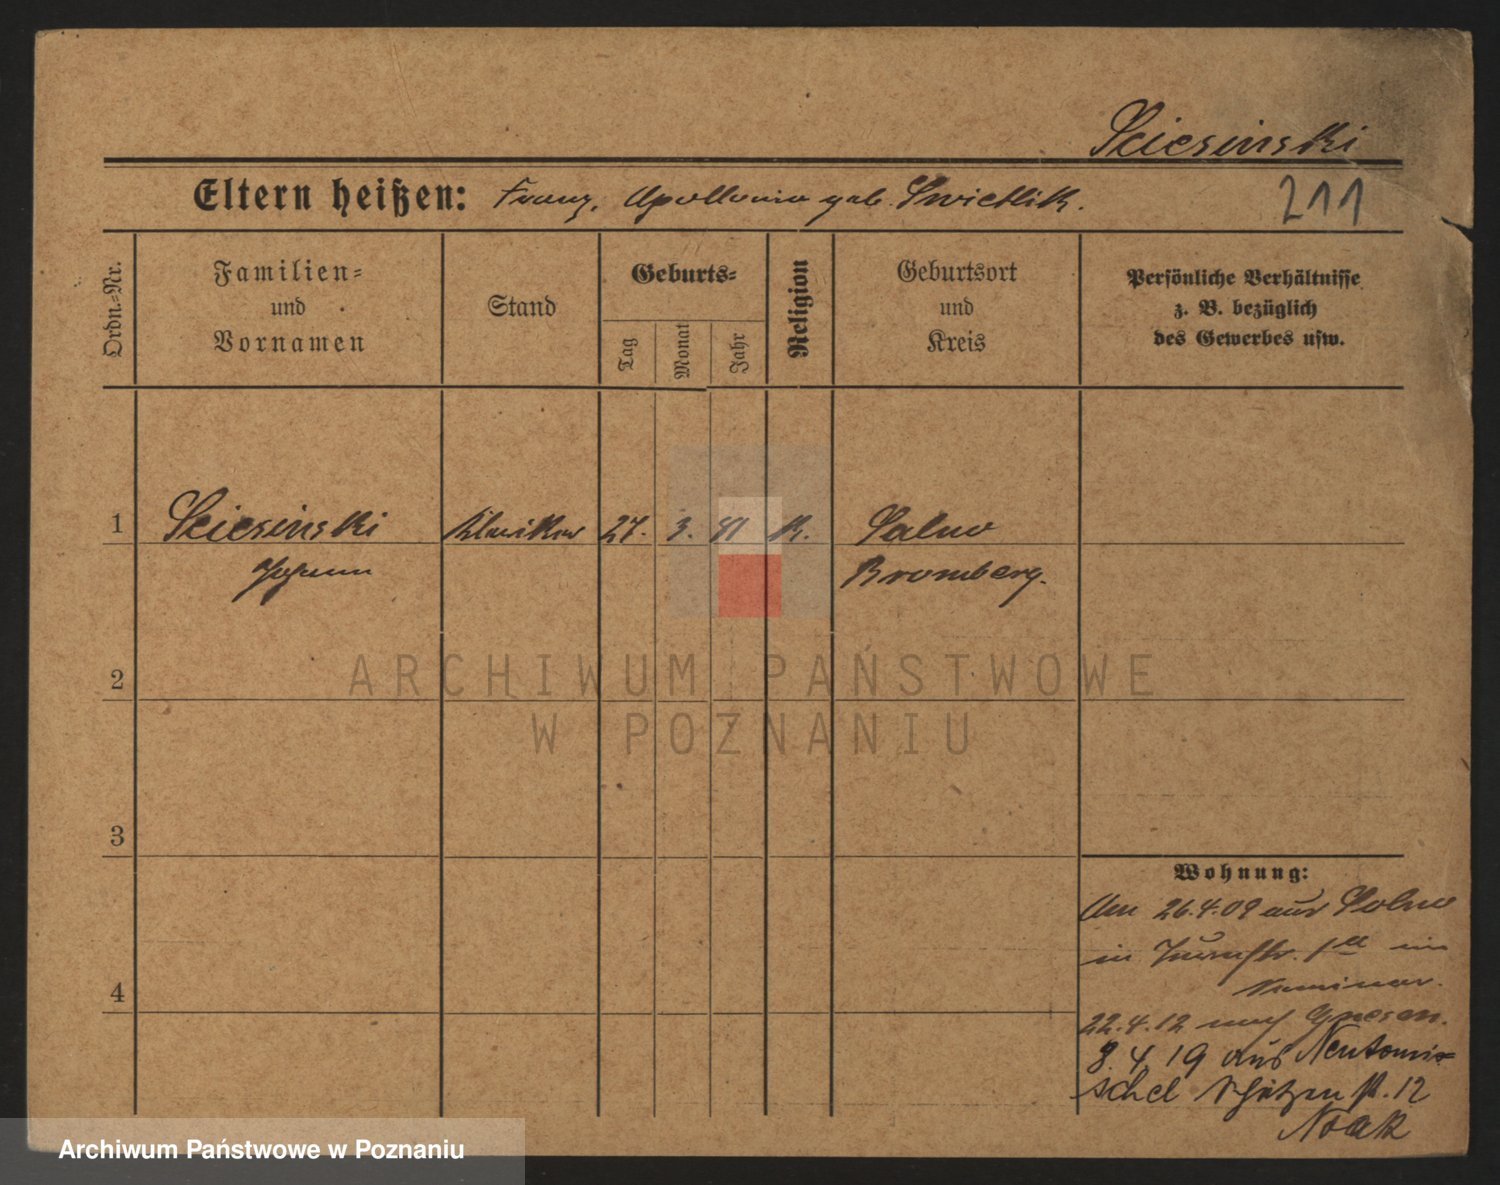 Sciesinski
Eltern heißen: Franz, Apollonia geb. Swietlik.
211
Ordn.-Nr.
Familien-
und
Vornamen
Stand
Geburts-
Tag
Monat
Jahr
Religion
Geburtsort
und
Kreis
Persönliche Verhältnisse
z. B. bezüglich
des Gewerbes usw.
1 Sciesinski Kleriker 27. 3. K.
Johann Bromberg.
2
3
4
Wohnung:
Am 26.4.09 aus
in
Seminar.
22.4.12 nach Gnesen.
8.4.19 aus Neutomi-
schel Schützenst. 12
Noak
ARCHIWUM PAŃSTWOWE
W POZNANIU
Archiwum Państwowe w Poznaniu